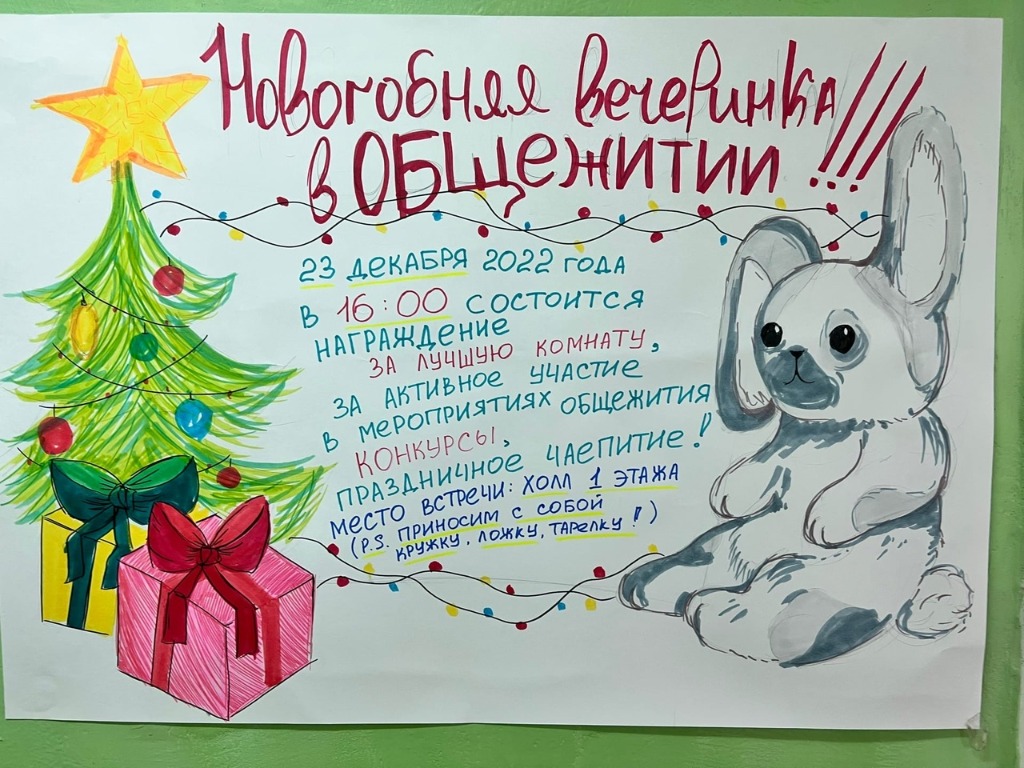 Новогодняя вечеринка!!!
в ОБЩЕЖИТИИ
23 ДЕКАБРЯ 2022 ГОДА
В 16:00 СОСТОИТСЯ
НАГРАЖДЕНИЕ
ЗА ЛУЧШУЮ КОМНАТУ,
ЗА АКТИВНОЕ УЧАСТИЕ
В МЕРОПРИЯТИЯХ ОБЩЕЖИТИЯ
КОНКУРСЫ,
ПРАЗДНИЧНОЕ ЧАЕПИТИЕ!
МЕСТО ВСТРЕЧИ: ХОЛЛ 1 ЭТАЖА
(P.S. ПРИНОСИМ С СОБОЙ
КРУЖКУ, ЛОЖКУ, ТАРЕЛКУ!)